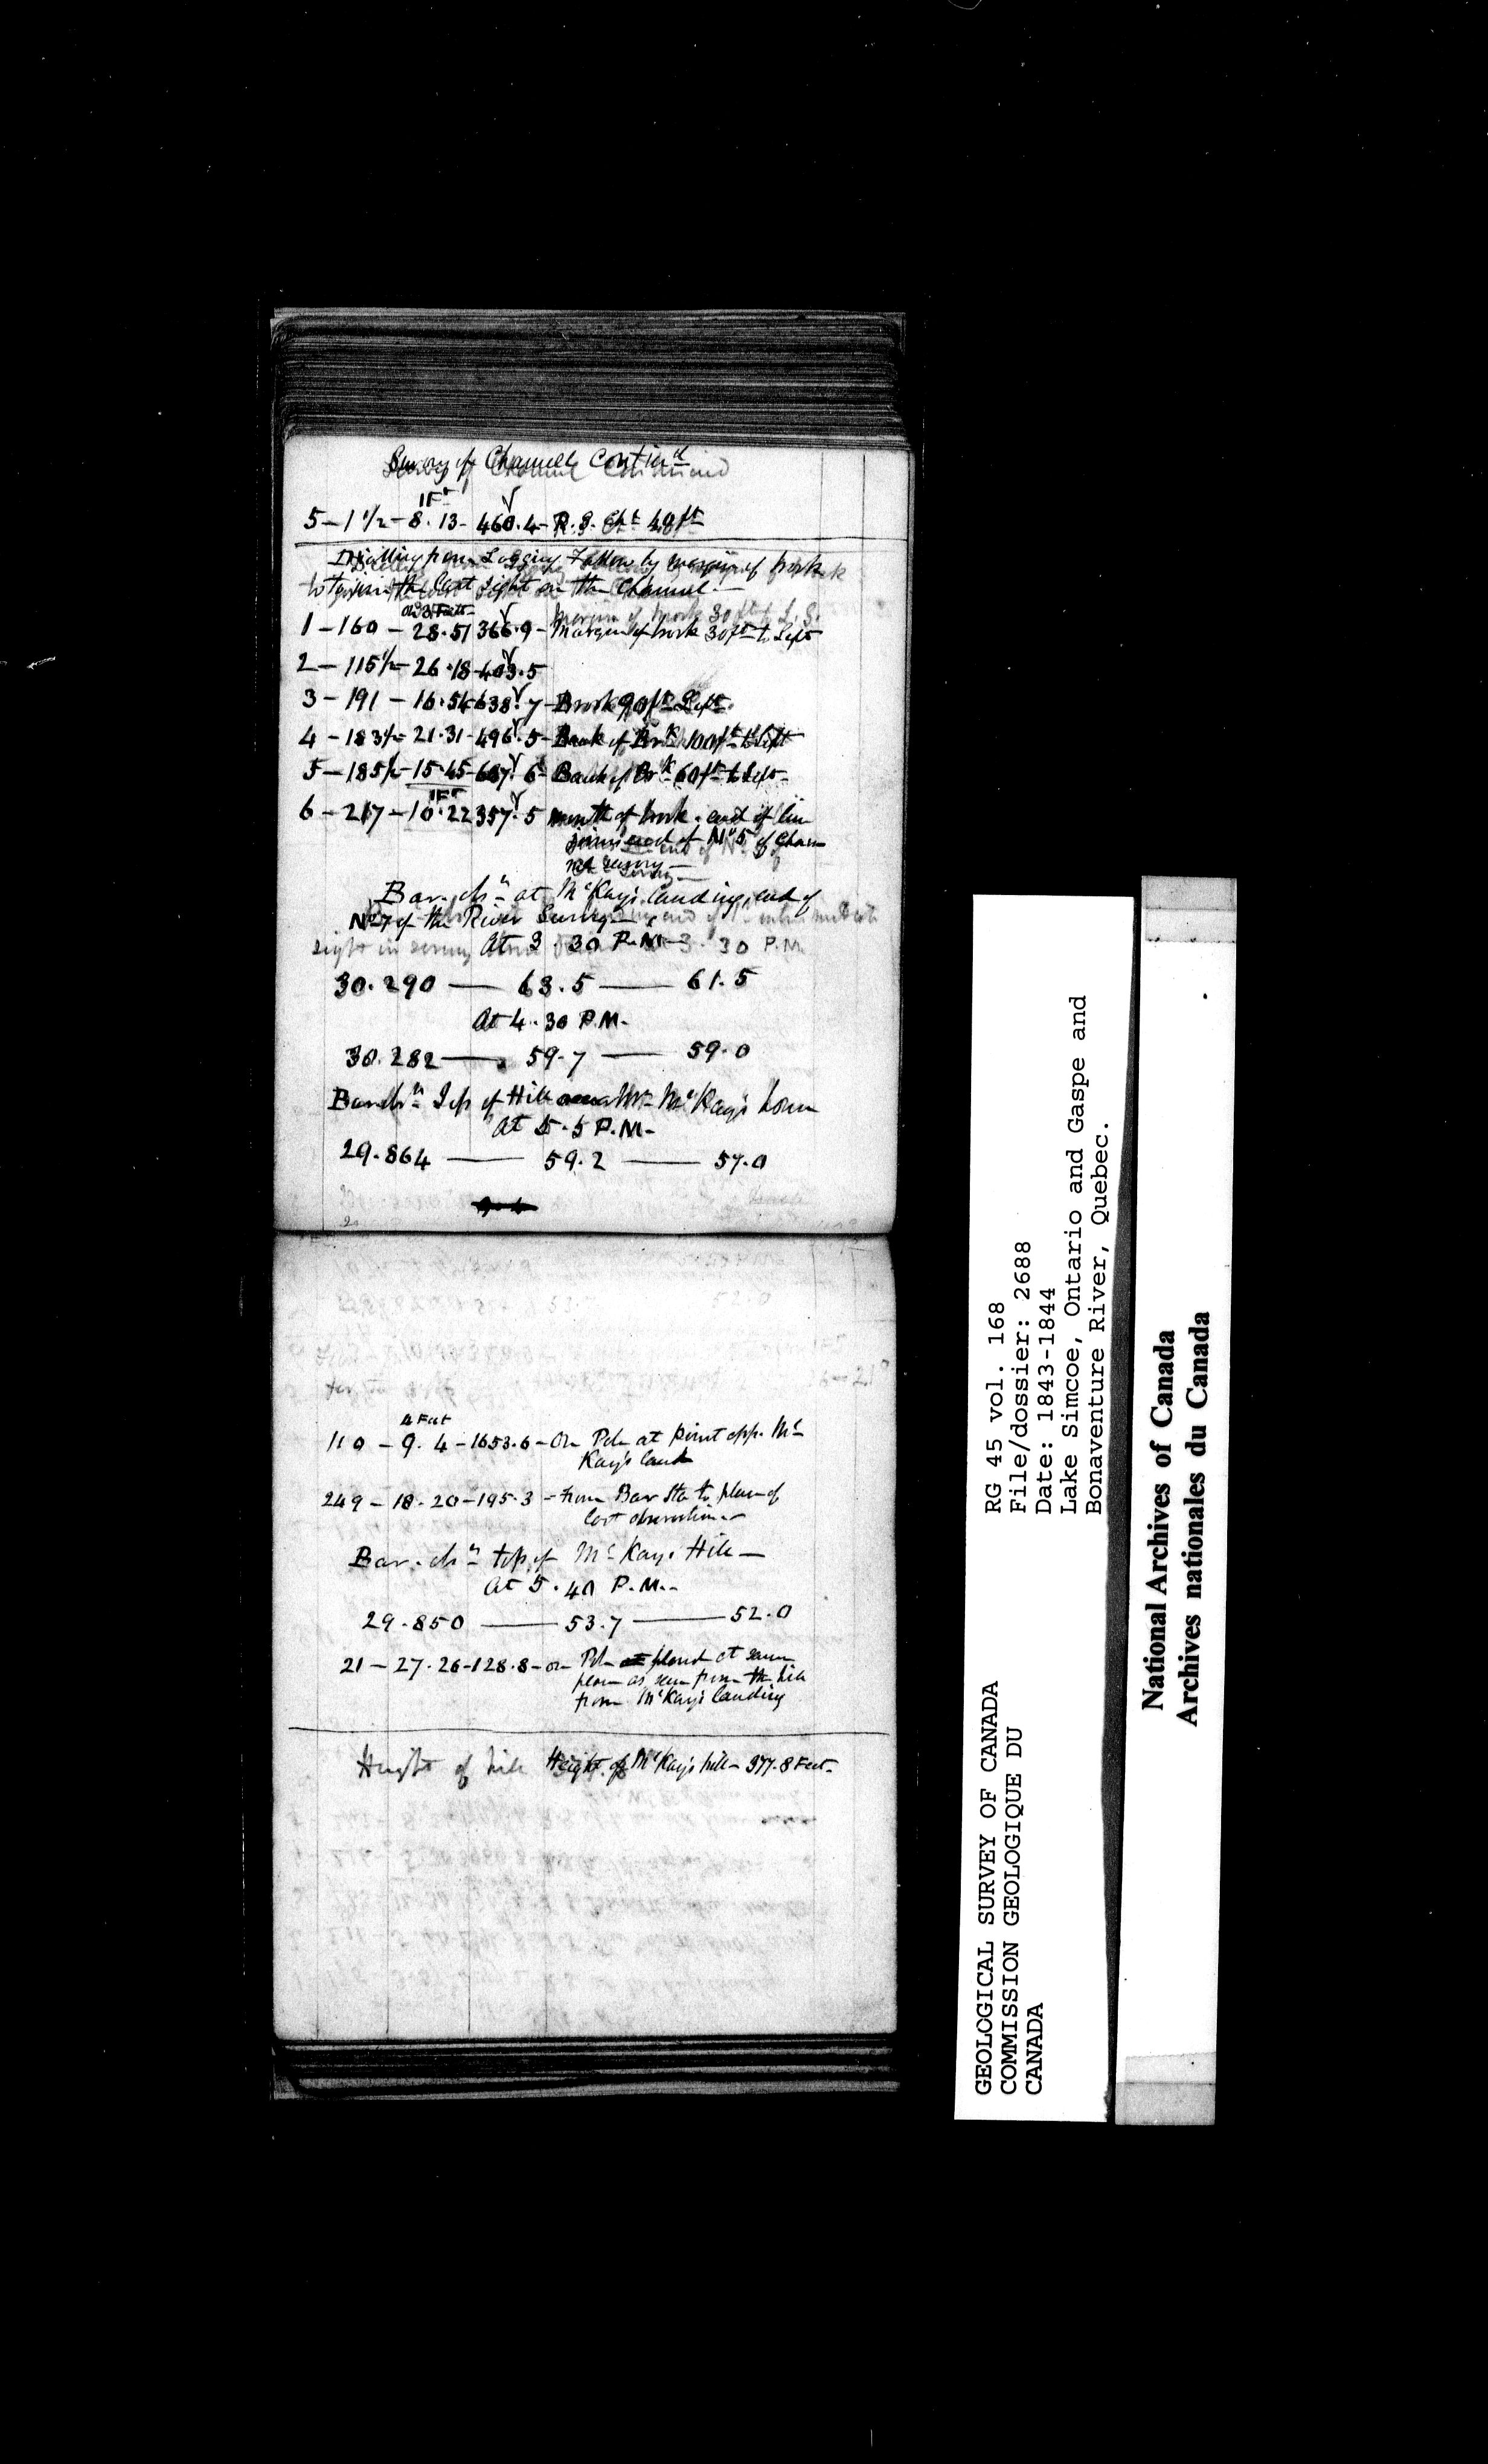 Survey of Channel Contin'd
1 Ft
5 – 1 1/2 – 8.13 – 460.4 – R.S. Cht 48 ft
Dialling from Logging Fallow by margin of brook
to join the last sight on the Channel –
3 Feet
1 – 160 – 28.51 366.9 – Margin of brook 30 ft to Left
2 – 115 1/2 – 26.18 – 403.5
3 – 191 – 16.54 638.7 – Brook 90 ft Left
4 – 183 1/2 – 21.31 – 496.5 – Bank of Brk 100 ft to left
5 – 185 1/2 – 15.45 – 667.6 Bank of Brk 60 ft to Left
1 Ft
6 – 217 – 10.22 357.5 mouth of brook. end of line
joins end of No 5 of Chan
nel survey –
Bar. obsn at McKay's landing, end of
No 7 of the River Survey –
At 3.30 P.M.
30.290 — 63.5 — 61.5
At 4.30 P.M.
30.282 — 59.7 — 59.0
Bar obsn Top of Hill Mr McKay's house
At 5.5 P.M.
29.864 — 59.2 — 57.0
4 Feet
110 – 9.4 – 1653.6 – On Pole at point opp. Mc
Kay's land
249 – 18.20 – 195.3 – from Bar Sta to place of
last observation
Bar. obsn top of McKays Hill —
At 5.40 P.M.
29.850 — 53.7 — 52.0
21 – 27.26 – 128.8 – on Pole placed at same
place as seen from the hill
from McKay's landing
Height of hill Height of McKay's hill – 377.8 Feet
RG 45 vol. 168
File/dossier: 2688
Date: 1843-1844
Lake Simcoe, Ontario and Gaspe and
Bonaventure River, Quebec.
GEOLOGICAL SURVEY OF CANADA
COMMISSION GEOLOGIQUE DU
CANADA
National Archives of Canada
Archives nationales du Canada